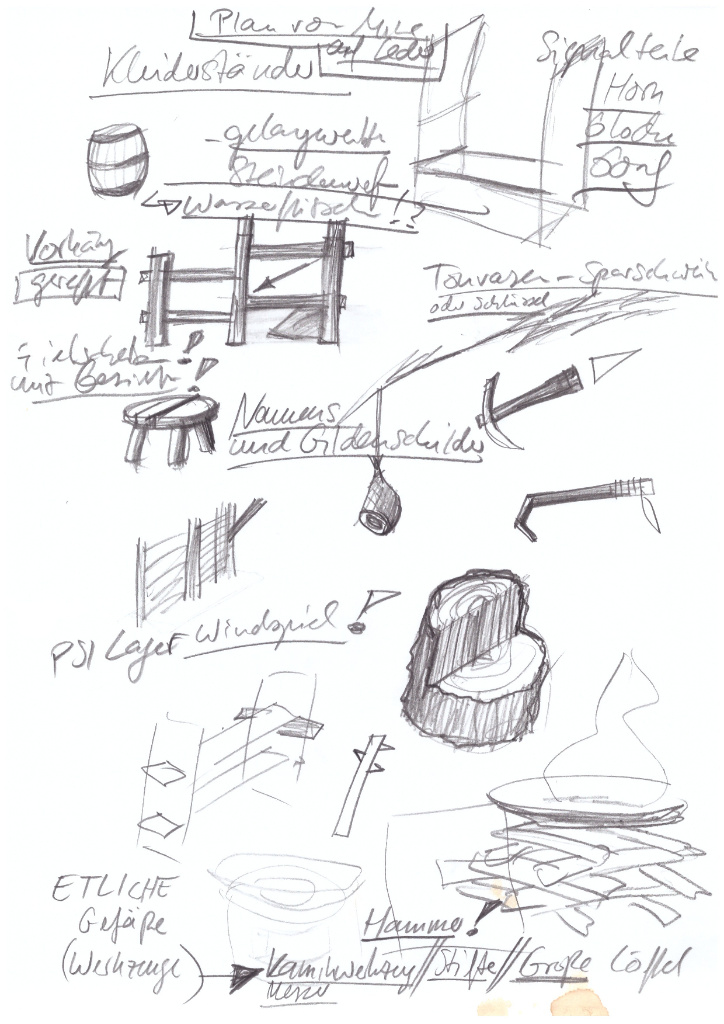 Plan von
auf Leder
Kleiderständer
Signalteile
Horn
Glocke
Gong
Wasser
!?
Vorhang
gerafft
Tonvasen - Sparschwein
oder Schlüssel
mit Gesicht !
Namens
und Gildenschilder
PSI Lager Windspiel !
ETLICHE
Gefäße
(Werkzeuge)
Hammer !
Stifte // Große Löffel
Messer